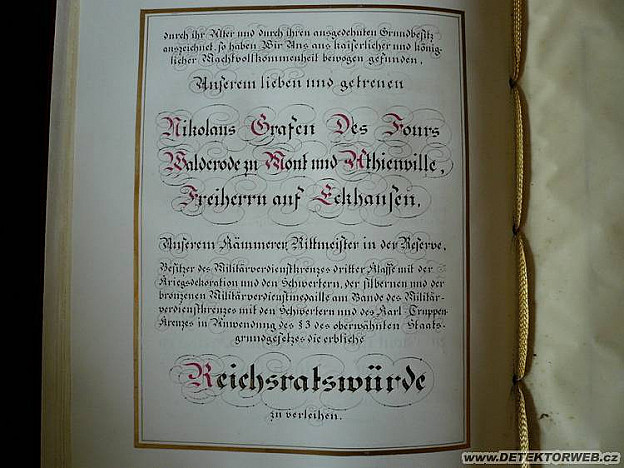 durch ihr Alter und durch ihren ausgedehnten Grundbesitz
auszeichnet, so haben Wir Uns aus kaiserlicher und könig-
licher Machtvollkommenheit bewogen gefunden,
Unserem lieben und getreuen
Nikolaus Grafen Des Fours
Walderode zu Mont und Athienville,
Freiherrn auf Eckhausen,
Unserem Kämmerer, Rittmeister in der Reserve,
Besitzer des Militärverdienstkreuzes dritter Klasse mit der
Kriegsdekoration und den Schwertern, der silbernen und der
bronzenen Militärverdienstmedaille am Bande des Militär-
verdienstkreuzes mit den Schwertern und des Karl-Truppen-
Kreuzes in Anwendung des §3 des oberwähnten Staats-
grundgesetzes die erbliche
Reichsratswürde
zu verleihen.
WWW.DETEKTORWEB.CZ